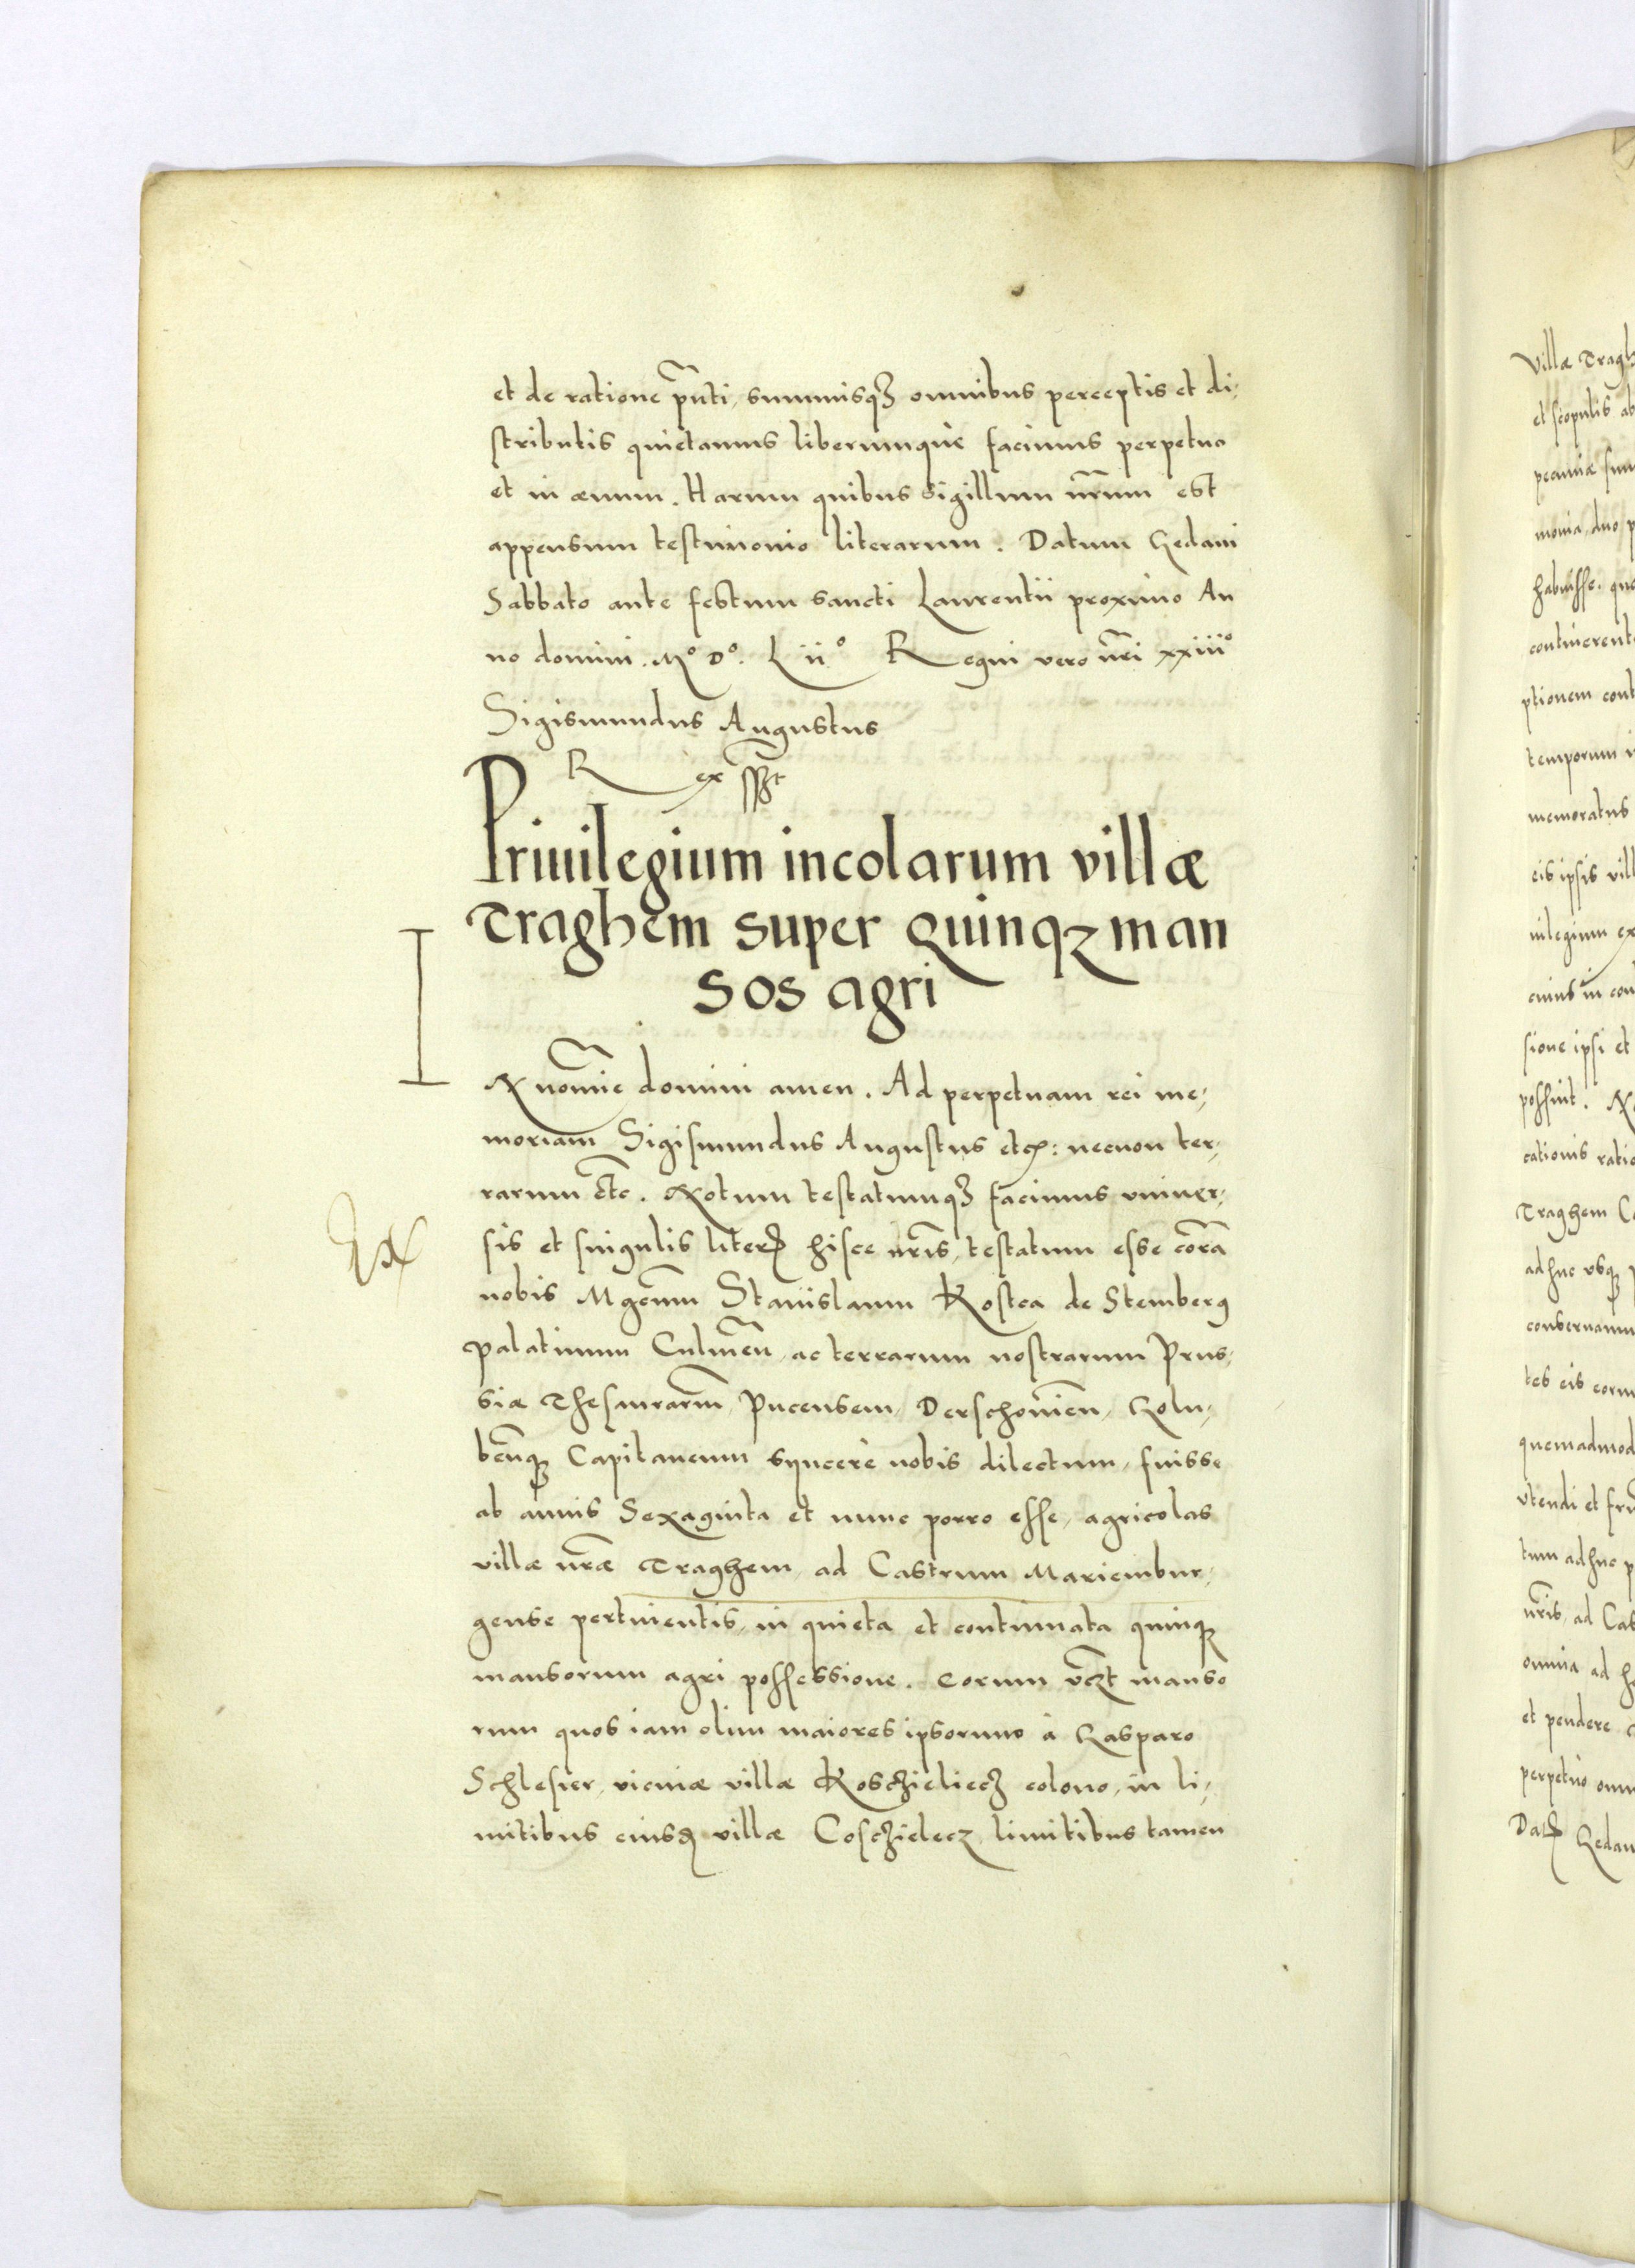 et de ratione pñti, summisqȝ omnibus perceptis et di-
stributis quietamus liberumque facimus perpetuo
et in æuum. Harum quibus sigillum nr̃um est
appensum testimonio literarum. Datum Gedani
Sabbato ante festum sancti Laurentii proximo An
no domini. Mº Dº. Liiº Regni vero nr̃i xxiiiº
Sigismundus Augustus
Rex sszt
Priuilegium incolarum villæ
Traghem super quinqȝ man
sos agri
IN nomīe domini amen. Ad perpetuam rei me-
moriam Sigismundus Augustus etc: necnon ter-
rarum etc. Notum testatumqȝ facimus vniuer-
sis et singulis literis hisce nr̃is, testatum esse corã
nobis Mgcum Stanislaum Kostca de Stemberg
palatinum Culmeñ, ac terrarum nostrarum Prus-
siæ Thesaurariũ, Pucensem, Derschouieñ, Golu-
beñqȝ Capitaneum syncerè nobis dilectum, fuisse
ab annis Sexaginta et nunc porro esse, agricolas
villæ nr̃æ Traghem, ad Castrum Mariembur-
gense pertinentis, in quieta et continuata quinqȝ
mansorum agri possessione. Eorum vczt manso
rum quos iam olim maiores ipsorum à Gasparo
Schlesier, vicinæ villæ Koscȝieliecȝ colono, in li-
mitibus eiusd villæ Coscȝielecz, limitibus tamen
Villæ Tragh
et scopulis ab
pecuniæ sum
monia, duo p
habuisse. qu
continerent
ptionem cont
temporum i
memoratus
eis ipsis vill
uilegium ex
cuius in con
sione ipsi et
possint. N
cationis ratio
Traghem C
adhuc vsqȝ
conseruamu
tes eis eorum
quemadmod
vtendi et fru
tum adhuc p
nr̃is, ad Cas
omnia ad h
et pendere
perpetuò omn
Dat Gedan